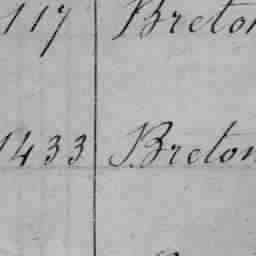 117 Breton
1433 Breton